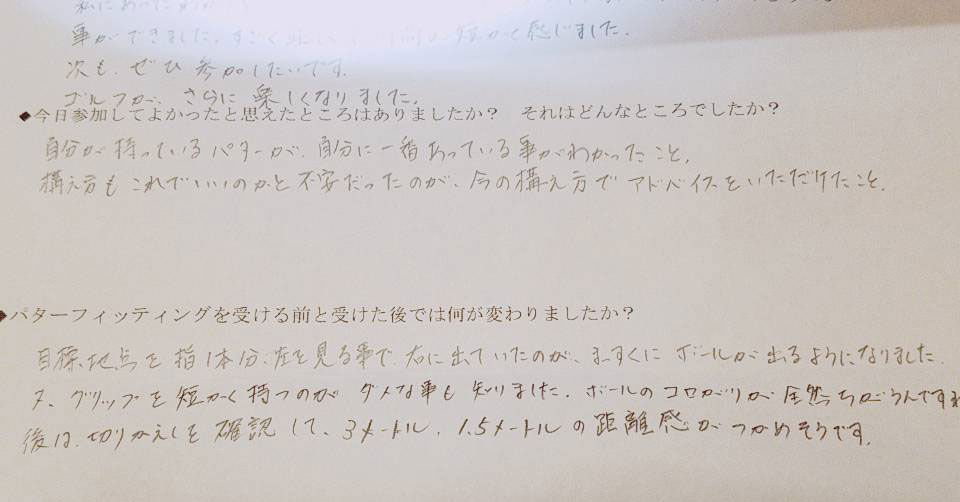 私にあった
事ができました。すごく 短かく感じました。
次も、ぜひ参加したいです。
ゴルフが、さらに楽しくなりました。
◆今日参加してよかったと思えたところはありましたか？　それはどんなところでしたか？
自分が持っているパターが、自分に一番あっている事がわかったこと。
構え方もこれでいいのかと不安だったのが、今の構え方でアドバイスをいただけたこと。
◆パターフィッティングを受ける前と受けた後では何が変わりましたか？
目標地点を指1本分、左を見る事で、右に出ていたのが、まっすぐにボールが出るようになりました。
又、グリップを短かく持つのがダメな事も知りました。ボールのコロがりが全然ちがうんですね
後は、切りかえしを確認して、3メートル、1.5メートルの距離感がつかめそうです。